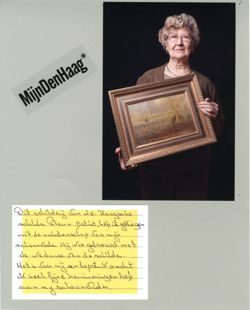 MijnDenHaag
Dit schilderij van de Haagsche
schilder
heb ik gekregen
uit de nalatenschap van mijn
schoonvader. Hij was getrouwd met
de weduwe van de schilder.
Het is voor mij een topstuk omdat
ik heel fijne herinneringen heb
aan mijn schoonvader.